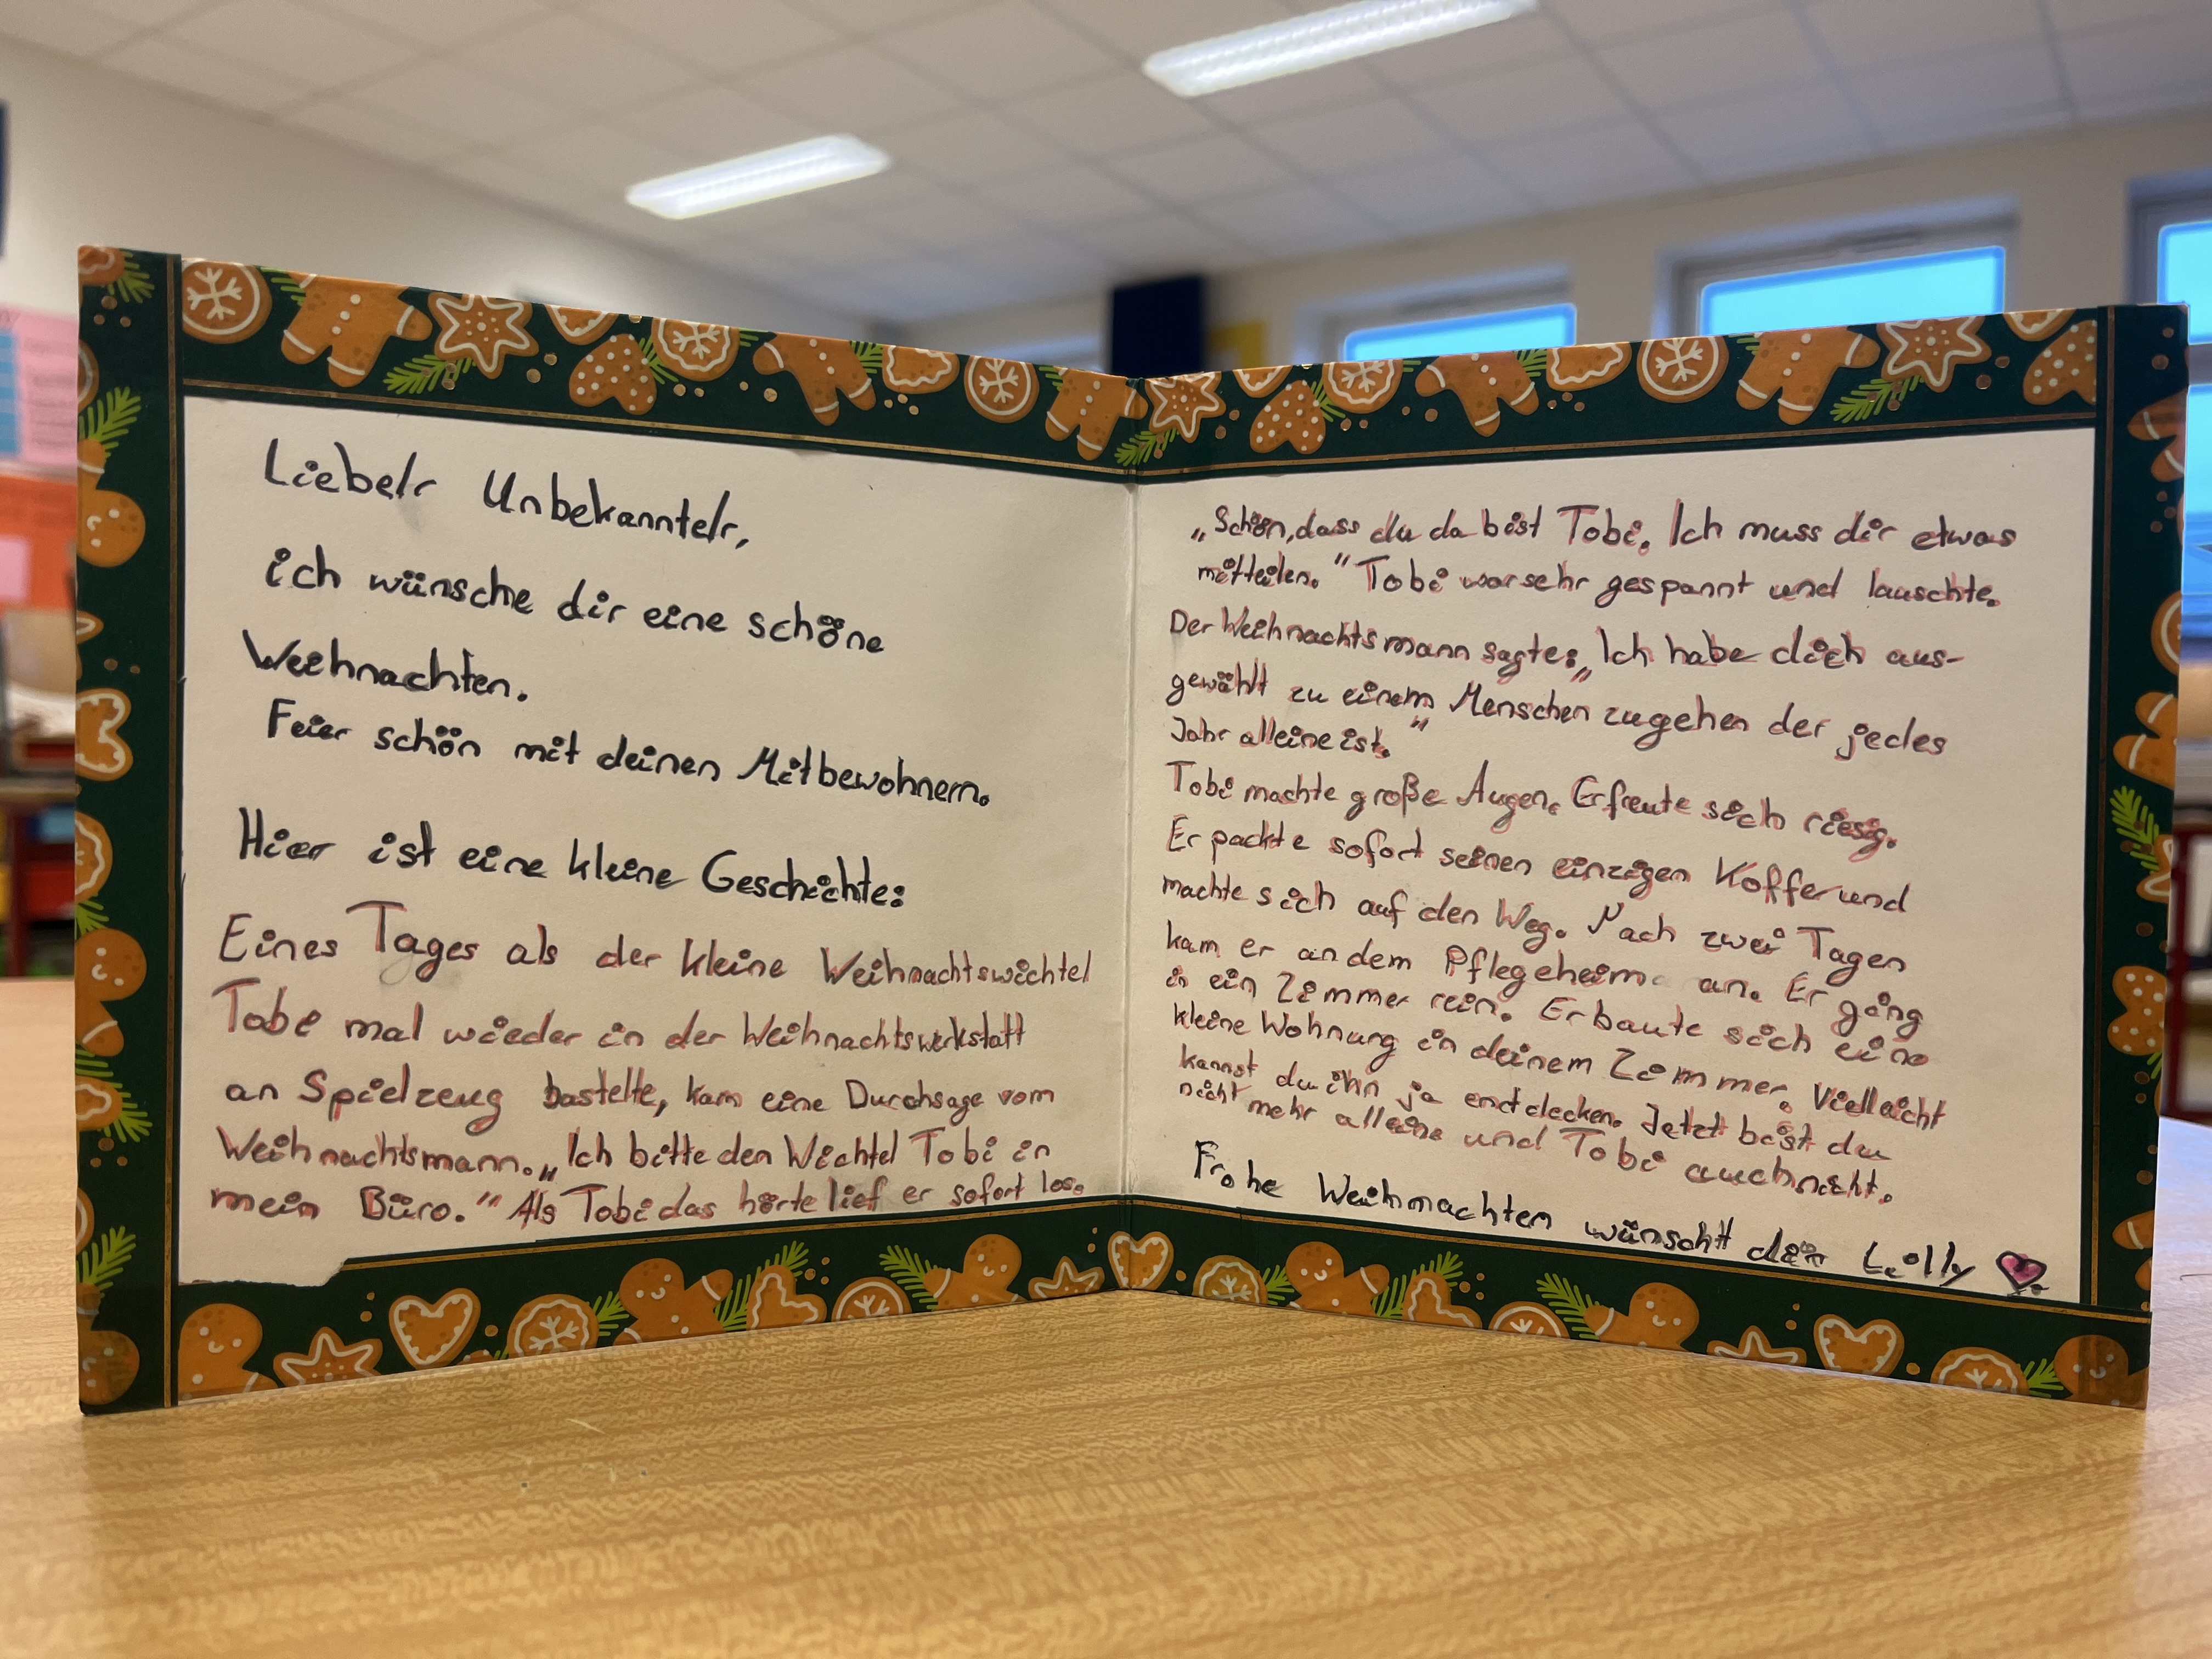 Liebe/r Unbekannte/r,
ich wünsche dir eine schöne
Weihnachten.
Feier schön mit deinen Mitbewohnern.
Hier ist eine kleine Geschichte:
Eines Tages als der kleine Weihnachtswichtel
Tobi mal wieder in der Weihnachtswerkstatt
an Spielzeug bastelte, kam eine Durchsage vom
Weihnachtsmann. „Ich bitte den Wichtel Tobi in
mein Büro." Als Tobi das hörte lief er sofort los.
„Schön, dass du da bist Tobi. Ich muss dir etwas
mitteilen." Tobi war sehr gespannt und lauschte.
Der Weihnachtsmann sagte: „Ich habe dich aus-
gewählt zu einem Menschen zugehen der jedes
Jahr alleine ist."
Tobi machte große Augen. Er freute sich riesig.
Er packte sofort seinen einzigen Koffer und
machte sich auf den Weg. Nach zwei Tagen
kam er an dem Pflegeheim an. Er ging
in ein Zimmer rein. Er baute sich eine
kleine Wohnung in deinem Zimmer. Vielleicht
kannst du ihn ja entdecken. Jetzt bist du
nicht mehr alleine und Tobi auch nicht.
Frohe Weihnachten wünscht dir Lilly